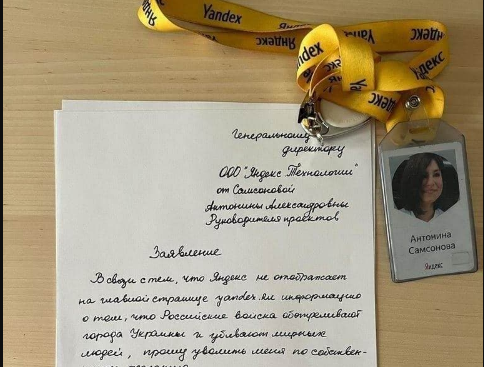 Yandex
Яндекс
Яндекс
Yandex
Яндекс
Яндекс
Генеральному
директору
ООО "Яндекс Технологии"
от Самсоновой
Антонины Александровны
Руководителя проектов
Заявление
В связи с тем, что Яндекс не отображает
на главной странице yandex.ru информацию
о том, что Российские войска обстреливают
города Украины и убивают мирных
людей, прошу уволить меня по собствен-
Антонина
Самсонова
Яндекс